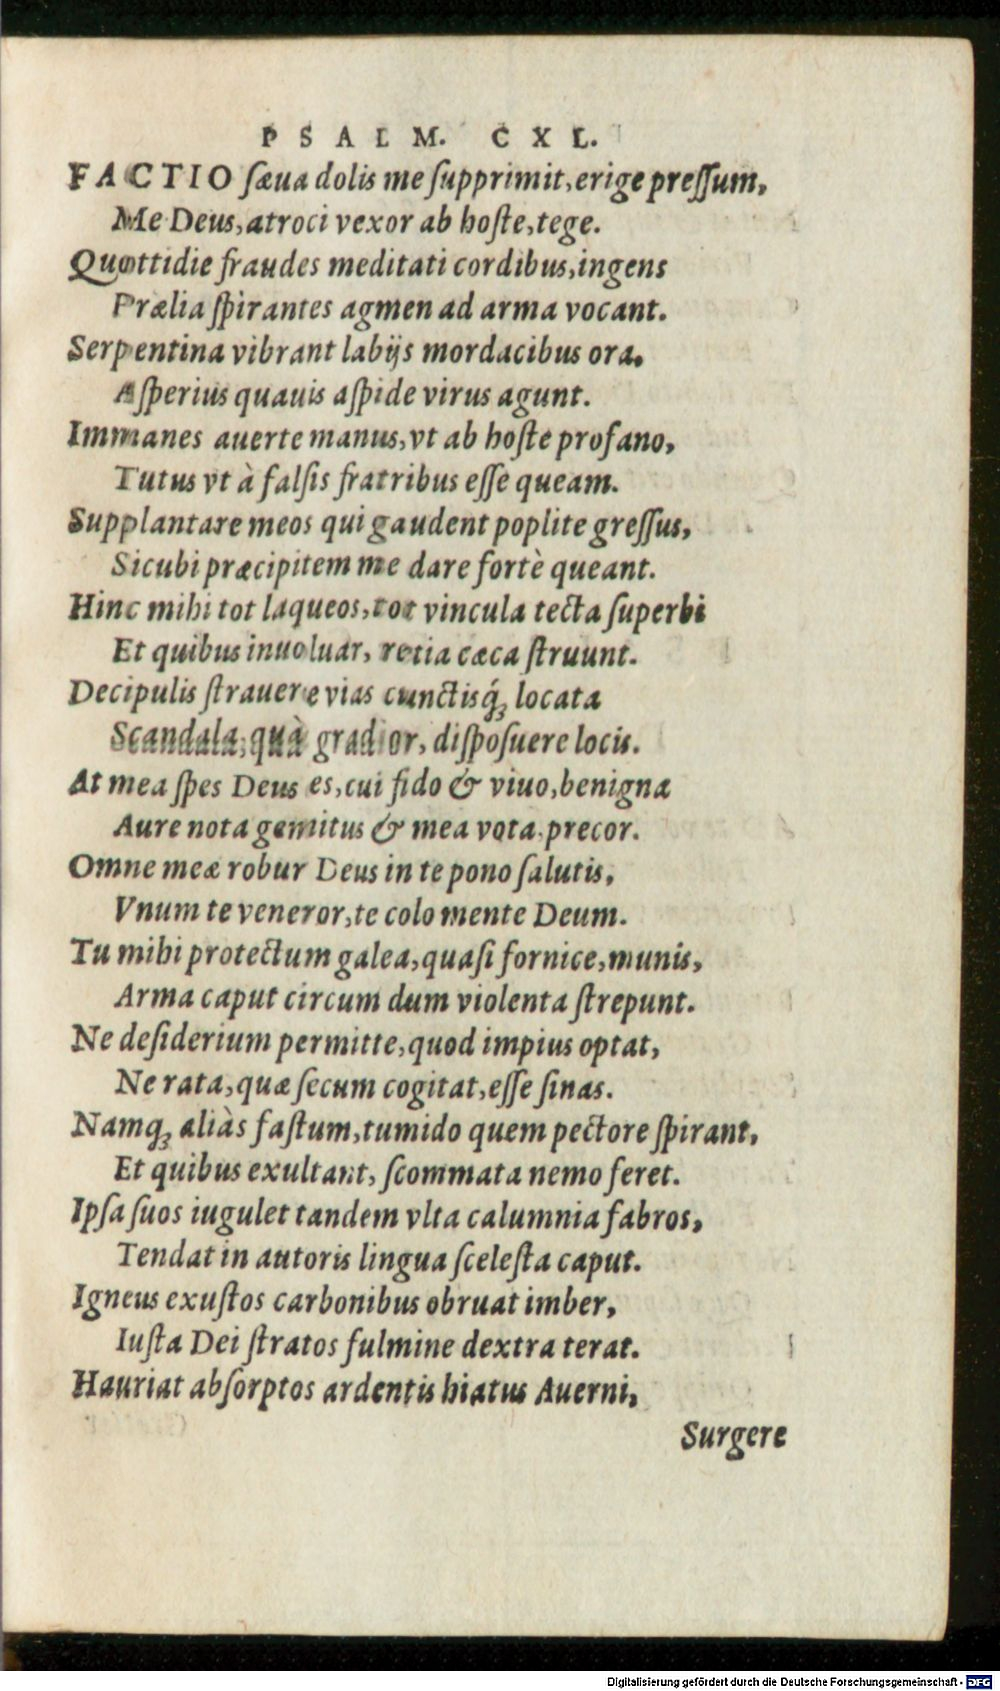 PSALM. CXL.
FACTIO sæua dolis me supprimit, erige pressum,
Me Deus, atroci vexor ab hoste, tege.
Quottidie fraudes meditati cordibus, ingens
Prælia spirantes agmen ad arma vocant.
Serpentina vibrant labijs mordacibus ora,
Asperius quauis aspide virus agunt.
Immanes auerte manus, vt ab hoste profano,
Tutus vt à falsis fratribus esse queam.
Supplantare meos qui gaudent poplite gressus,
Sicubi præcipitem me dare fortè queant.
Hinc mihi tot laqueos, tot vincula tecta superbi
Et quibus inuoluar, retia cæca struunt.
Decipulis strauere vias cunctisq́ꝫ locata
Scandala, quà gradior, disposuere locis.
At mea spes Deus es, cui fido & viuo, benigna
Aure nota gemitus & mea vota precor.
Omne meæ robur Deus in te pono salutis,
Vnum te veneror, te colo mente Deum.
Tu mihi protectum galea, quasi fornice, munis,
Arma caput circum dum violenta strepunt.
Ne desiderium permitte, quod impius optat,
Ne rata, quæ secum cogitat, esse sinas.
Namqꝫ aliàs fastum, tumido quem pectore spirant,
Et quibus exultant, scommata nemo feret.
Ipsa suos iugulet tandem vlta calumnia fabros,
Tendat in autoris lingua scelesta caput.
Igneus exustos carbonibus obruat imber,
Iusta Dei stratos fulmine dextra terat.
Hauriat absorptos ardentis hiatus Auerni,
Surgere
Digitalisierung gefördert durch die Deutsche Forschungsgemeinschaft - DFG